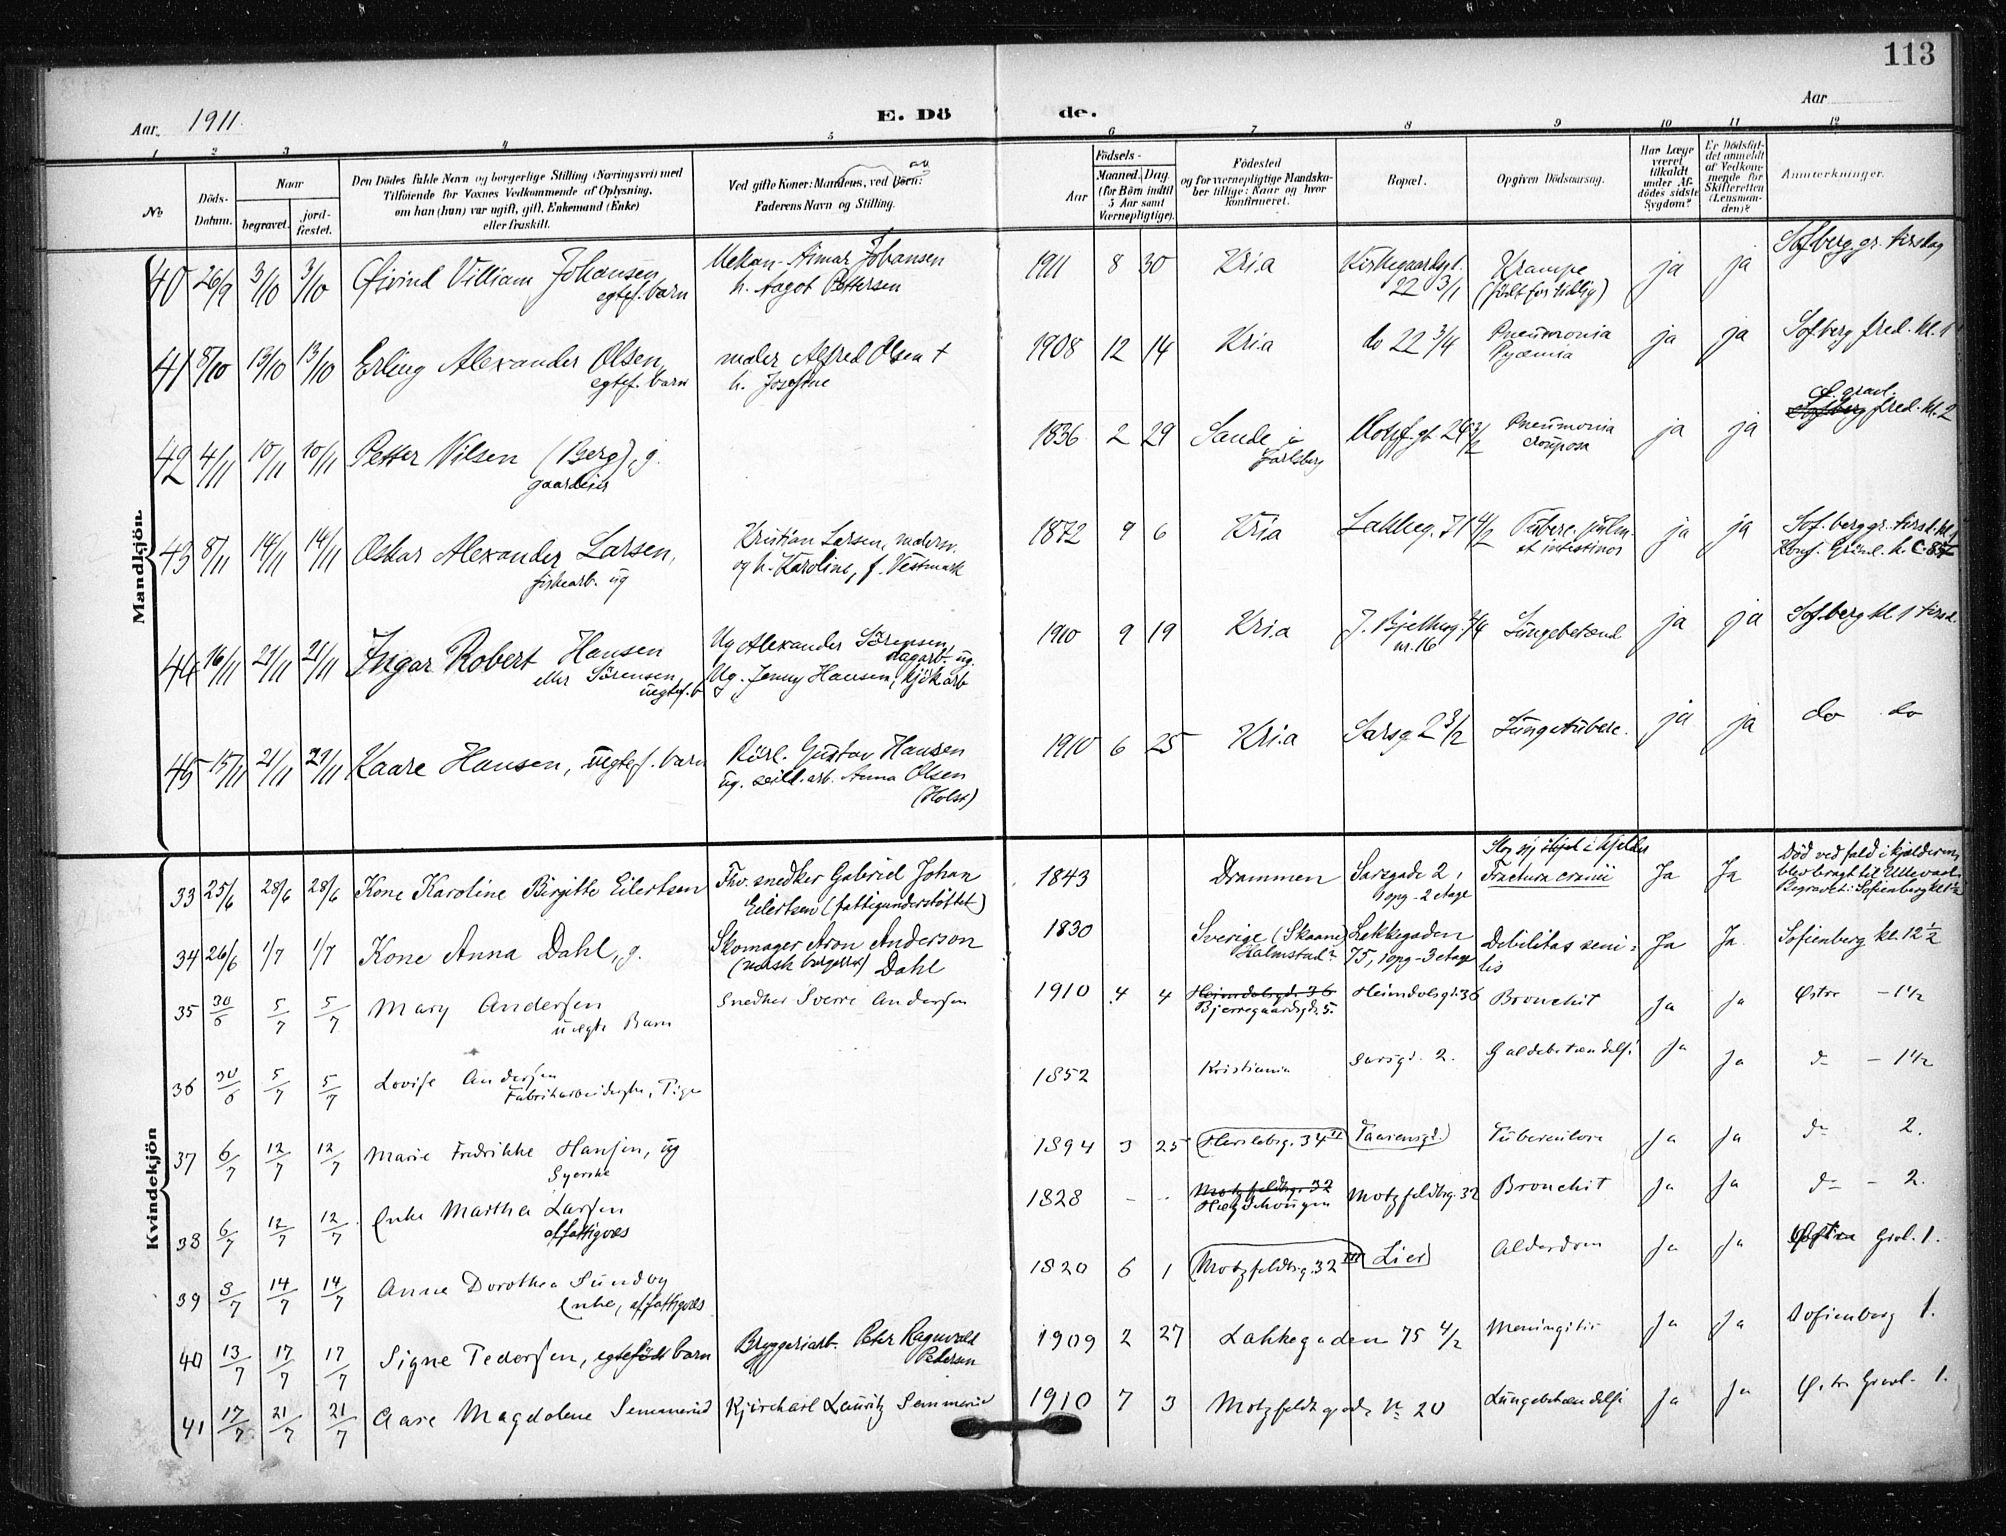 113
Aar. 1911.
E. Dö de.
Aar
1 2 3 4 5 6 7 8 9 10 11 12
No
Döds-Datum.
Naar
begravet.
jord-fæstet.
Den Dödes fulde Navn og borgerlige Stilling (Næringsvei) med
Tilföiende for Voxnes Vedkommende af Oplysning,
om han (hun) var ugift, gift, Enkemand (Enke)
eller fraskilt.
Ved gifte Koner: Mandens, ved Börn:
Faderens Navn og Stilling.
Födsels-
Aar
Maaned. Dag.
(for Börn indtil
5 Aar samt
Værnepligtige).
Födested
og for værnepligtige Mandska-
ber tillige: Naar og hvor
konfirmeret.
Bopæl.
Opgiven Dödsaarsag.
Har Læge
været
tilkaldt
under Af-
dödes sidste
Sygdom?
Er Dödsfal-
det anmeldt
af Vedkom-
mende for
Skifteretten
(Lensman-
den)?
Anmærkninger.
Mandkjön.
40 26/9 3/10 3/10 Øivind Villiam Johansen, Mekan. Aimar Johansen 1911 8 30 Kria Kirkegaardsgt. Krampe ja ja Sofberg gr. tirsdag
egtef. barn h. Aagot Pettersen 22 3/1 (født for tidlig)
41 8/10 13/10 13/10 Erling Alexander Olsen, maler Alfred Olsen † 1908 12 14 Kria do 22 3/4 Pneumonia ja ja Sofberg fred. kl. 1
egtef. barn h. Josefine Pyæmia
42 4/11 10/11 10/11 Petter Nilsen (Berg), g. 1836 2 29 Sande i Motzf. gt 24 3/2 Pneumonia ja ja Ø. gravl. fred. kl. 2
gaardeier Jarlsberg crouposa
43 8/11 14/11 14/11 Oskar Alexander Larsen, Kristian Larsen, malerm. 1872 9 6 Kria Lakkeg. 71 4/2 Tuberc. pulm. ja ja Sof. berg gr. tirsd. kl. 1
fiskearb. ug og h. Karoline, f. Vestmark et intestinos Konf. Grünl. k.
44 16/11 21/11 21/11 Ingar Robert Hansen Ug Alexander Sörensen, 1910 9 19 Kria J. Bjelkesg. 3/4 Lungebetænd ja ja Sofberg kl 1 tirsd.
eller Sörensen, dagarb. ug. nr. 16
uegtef. b Ug. Jenny Hansen, kjök arb
45 15/11 21/11 21/11 Kaare Hansen, uegtef. barn Rörl. Gustav Hansen 1910 6 25 Kria Sarsg 2 3/2 Lungetuberc. ja ja do do
ug. seild. arb. Anna Olsen
(Holst)
Kvindekjön
33 25/6 28/6 28/6 Kone Karoline Birgitte Eilertsen Fhv. snedker Gabriel Johan 1843 Drammen Sarsgade 2, Fractura cranii Ja Ja Död ved fald i kjælderen,
Eilertsen (fattigunderstöttet) 1 opg – 2 etage blev bragt til Ullevaal.
Begravet: Sofienberg
34 26/6 1/7 1/7 Kone Anna Dahl, g. Skomager Aron Anderson 1830 Sverige (Skaane) Lakkegaden Debilitas seni- Ja Ja Sofienberg kl. 12 1/2
(norsk borgerret) Dahl Halmstad? 75, 1 opg – 3 etage lis
35 30/6 5/7 5/7 Mary Andersen Snedker Sverre Andersen 1910 4 4 Heimdalsgd. 36 Heimdalsgt. 36 Bronchit Ja Ja Østre – 1 1/2
uegte Barn Bjerregaardsgd. 5.
36 30/6 5/7 5/7 Lovise Andersen 1852 Kristiania Sarsgd. 2. Galdebetændelse Ja Ja do – 1 1/2
Fabrikarbeiderske, Pige
37 6/7 12/7 12/7 Marie Fredrikke Hansen, ug 1894 3 25 Herslebsg. 34 II Taasensgd. Tuberculose Ja Ja do 2.
Syerske
38 6/7 12/7 12/7 Enke Martha Larsen 1828 – – Motzfeldtsg. 32 Motzfeldtsg. 32 Bronchit Ja Ja do – 2.
af fattigvæs
39 8/7 14/7 14/7 Anna Dorothea Sundby 1820 6 1 Motzfeldtsg. 32 III Lier Alderdom Ja Ja Gravl. 1.
Enke, af fattigvæs
40 13/7 17/7 17/7 Signe Pedersen, egtefödt barn Bryggeriarb. Peter Ragnvald 1909 2 27 Lakkegaden 75 4/2 Meningitis Ja Ja Sofienberg 1.
Pedersen
41 17/7 21/7 21/7 Aase Magdalene Semmerud Kjörekarl Lauritz Semmerud 1910 7 3 Motzfeldtsgade No 20 Lungebetændelse Ja Ja Ø. tr. Gravl. 1.